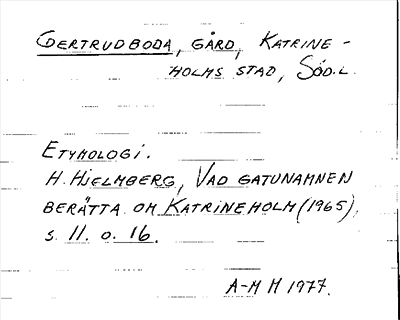 GERTRUDBODA, GÅRD, KATRINE-
HOLMS STAD, SÖD.L.
ETYMOLOGI.
H. HJELMBERG, VAD GATUNAMNEN
BERÄTTA OM KATRINEHOLM (1965),
s. 11. o. 16.
A-M H 1977.